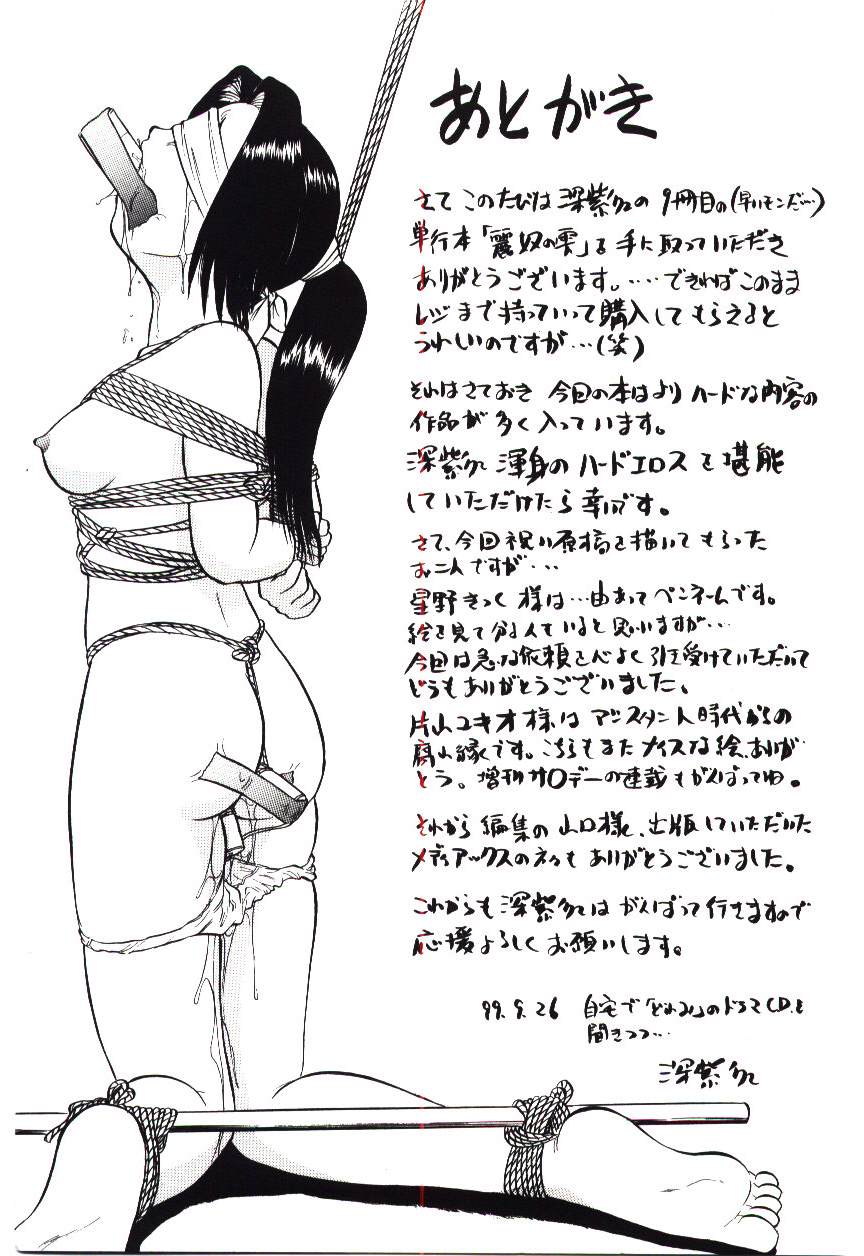 あとがき
さて このたびは 深紫糺の 9冊目の(早いモンだ…)
単行本「麗奴の雫」を手に取っていただき
ありがとうございます。……できればこのまま
レジまで持っていって購入してもらえると
うれしいのですが…(笑)
それはさておき 今回の本はより ハードな内容の
作品が多く入っています。
深紫 渾身のハードエロスを堪能
していただけたら幸いです。
さて、今回祝い原稿を描いてもらった
お二人ですが…
星野きっく様は…由あってペンネームです。
絵を見て分る人もいると思いますが…
今回は急な依頼を心よく引き受けていただいて
どうもありがとうございました。
片山ユキオ様はアシスタント時代からの
腐れ縁です。こちらもまたナイスな絵、ありが
とう。増刊サ〇デーの連載もがんばってね。
それから編集の山口様、出版していただいた
メディアックスの もありがとうございました。
これからも深紫 はがんばって行きますので
応援よろしくお願いします。
99.9.26 自宅で「どれみ」のドラマCDを
聞きつつ…
深紫